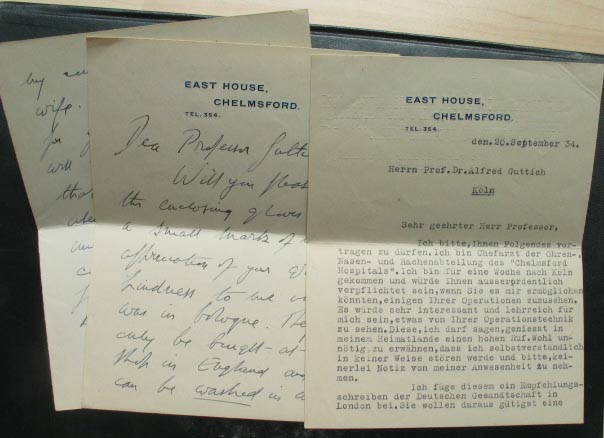 my
wife.
for
will
EAST HOUSE,
CHELMSFORD.
TEL. 354.
Dear Professor
Will you please
the enclosing gloves
a small mark of
appreciation of your
kindness to me
was in Cologne. The
only be bought at
ship in England and
can be washed in
EAST HOUSE,
CHELMSFORD.
TEL. 354.
den.20.September 34.
Herrn Prof.Dr.Alfred Guttich
Köln
Sehr geehrter Herr Professor,
Ich bitte,Ihnen Folgendes vor-
tragen zu dürfen.Ich bin Chefarzt der Ohren-,
Nasen- und Rachenabteilung des "Chelmsford
Hospitals".Ich bin für eine Woche nach Köln
gekommen und würde Ihnen ausserprdentlich
verpflichtet sein,wenn Sie es mir ermöglichen
könnten,einigen Ihrer Operationen zuzusehen.
Es würde sehr interessant und lehrreich für
mich sein,etwas von Ihrer Operationstechnik
zu sehen.Diese,ich darf sagen,geniesst in
meinem Heimatlande einen hohen Ruf.Wohl un-
nötig,zu erwähnen,dass ich selbstverständlich
in keiner Weise stören werde und bitte,kei-
nerlei Notiz von meiner Anwesenheit zu neh-
men.
Ich füge diesem ein Empfehlungs-
schreiben der Deutschen Gesandtschaft in
London bei.Sie wollen daraus gütigst eine